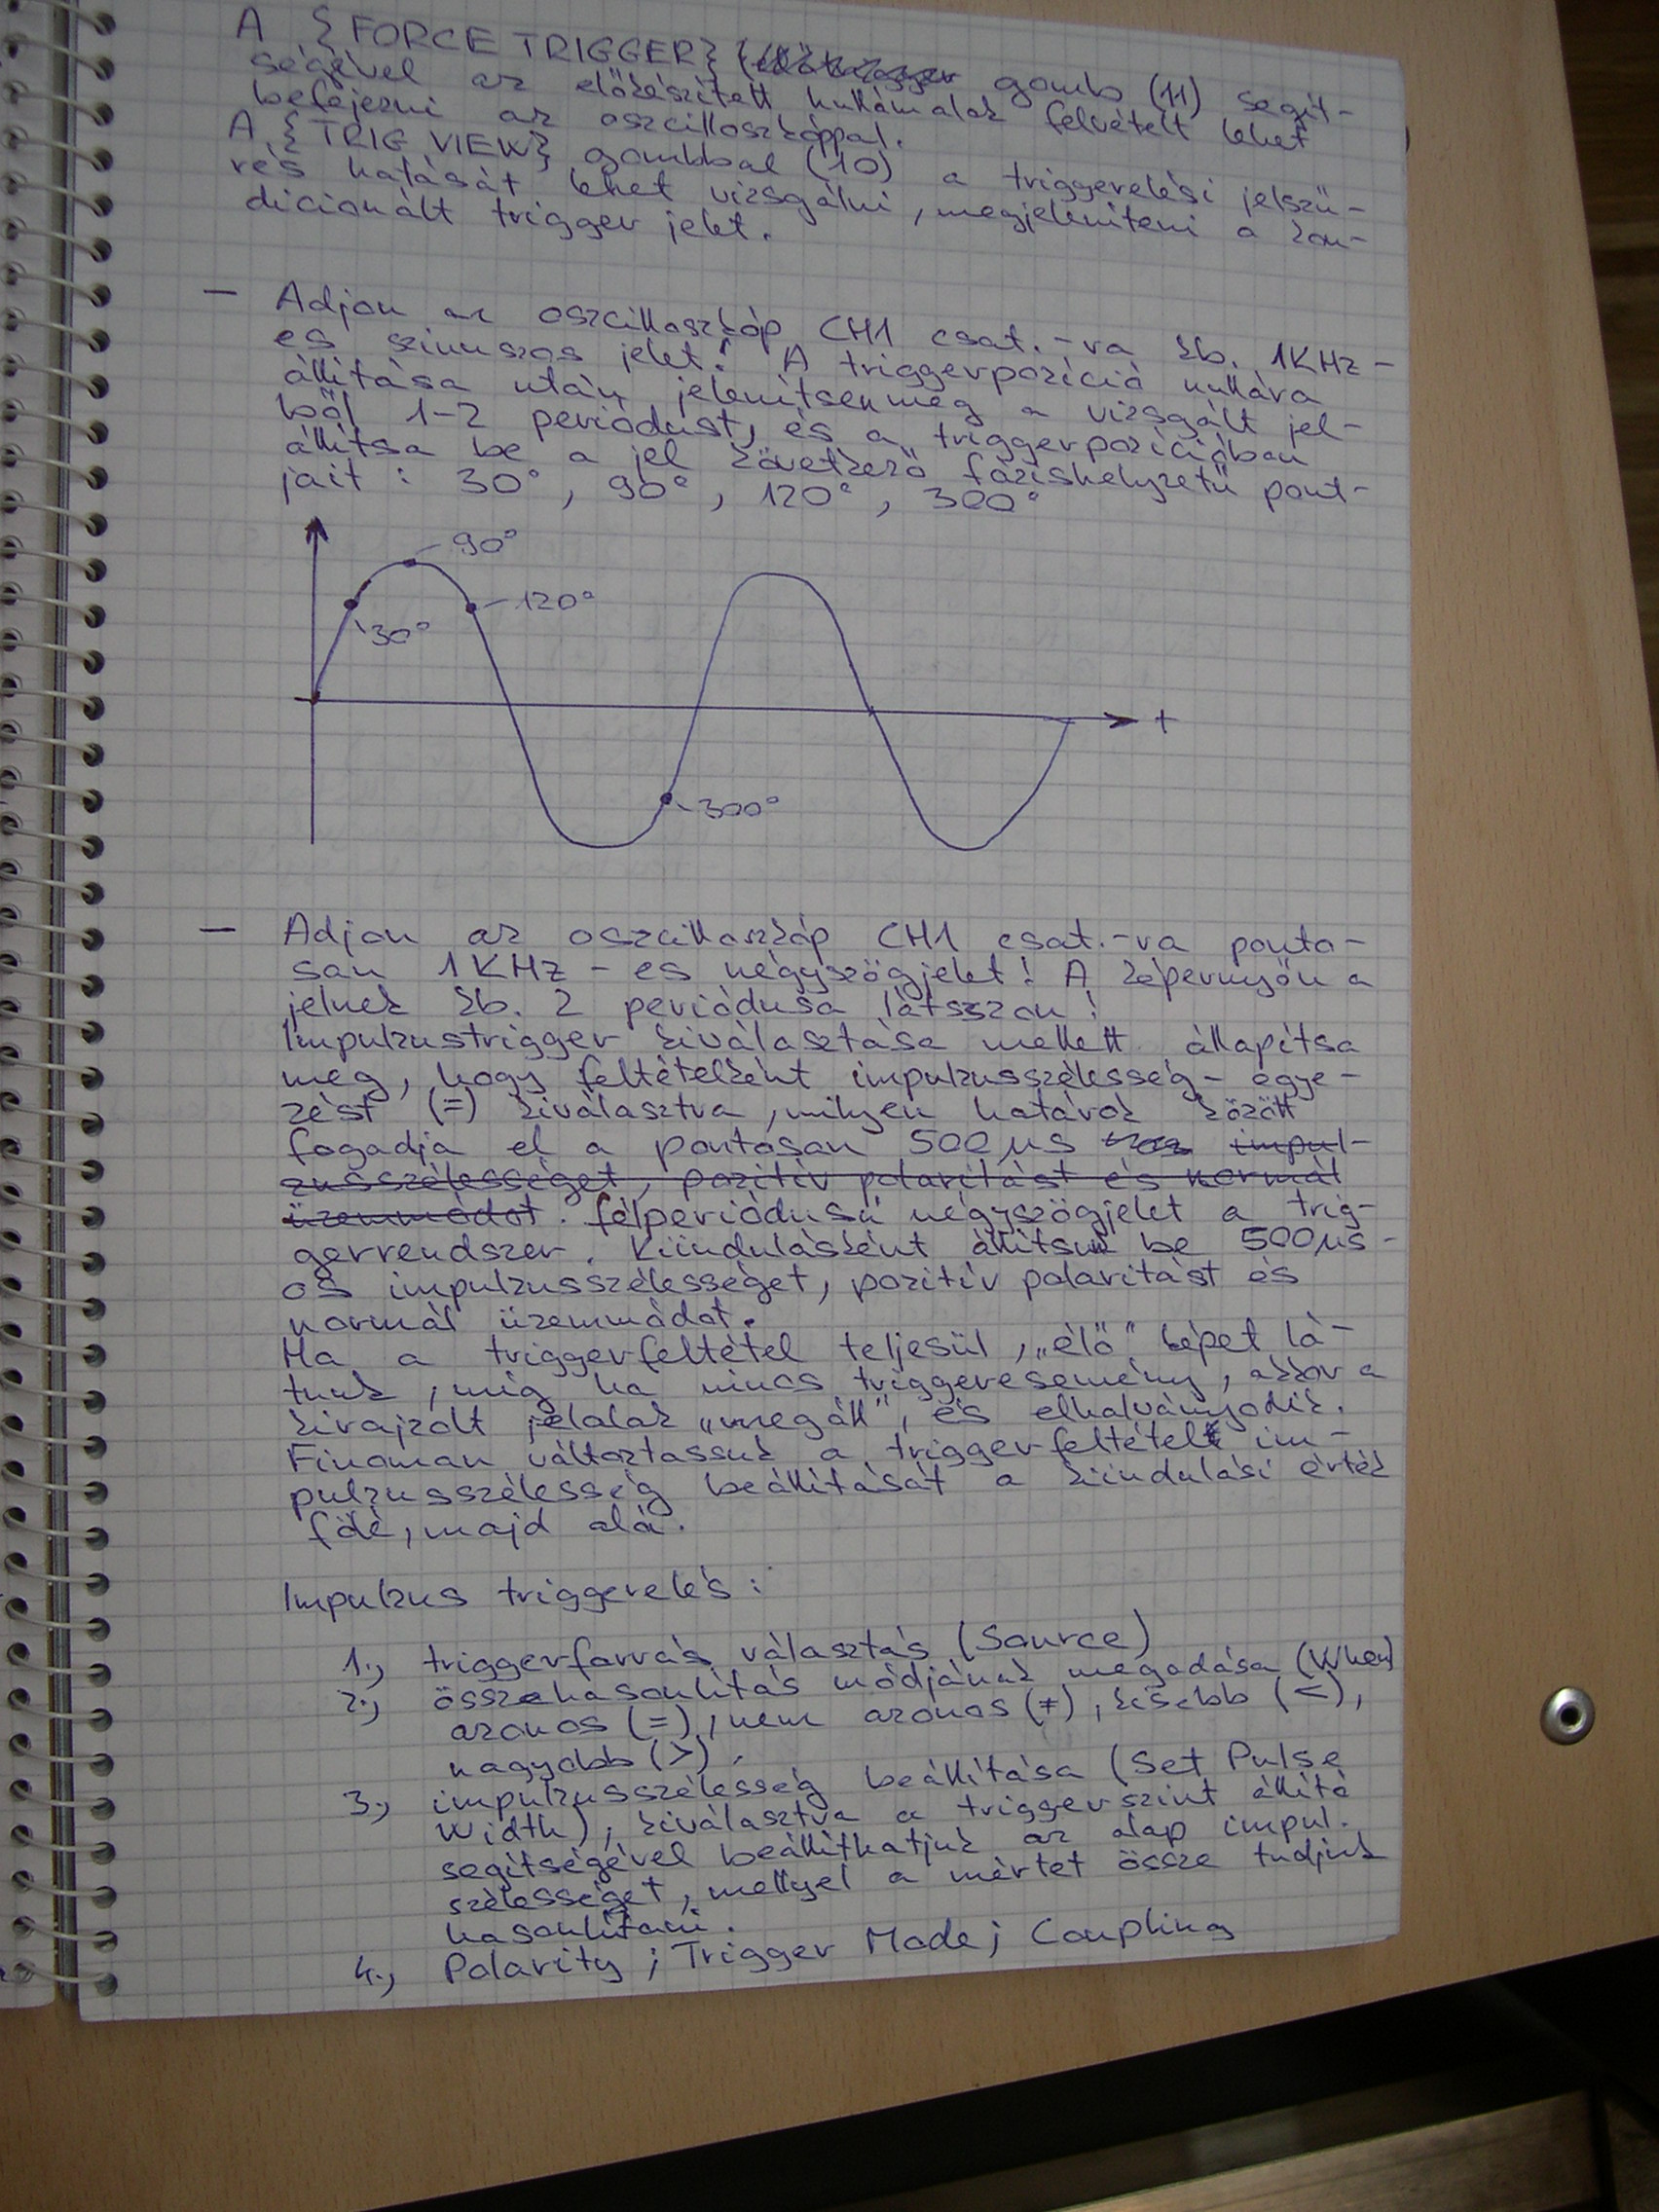 A {FORCE TRIGGER} gomb (11) segít-
ségével az előkészített hullámalak felvételt lehet
befejezni az oszcilloszkóppal.
A {TRIG VIEW} gombbal (10) a triggerelési jelszű-
rés hatását lehet vizsgálni, megjeleníteni a kon-
dicionált trigger jelet.
— Adjon az oszcilloszkóp CH1 csat.-ra kb. 1KHz-
es szinuszos jelet! A triggerpozíció nullára
állítása után jelenítsen meg a vizsgált jel-
ből 1-2 periódust, és a triggerpozícióban
állítsa be a jel következő fázishelyzetű pont-
jait : 30°, 90°, 120°, 300°
90°
120°
30°
t
300°
— Adjon az oszcilloszkóp CH1 csat.-ra ponto-
san 1KHz-es négyszögjelet! A képernyőn a
jelnek kb. 2 periódusa látsszon!
Impulzustrigger kiválasztása mellett állapítsa
meg, hogy feltételként impulzusszélesség-egye-
zést (=) kiválasztva, milyen határok között
fogadja el a pontosan 500µs impul-
zusszélességet, pozitív polaritást és normál
üzemmódot. félperiódusú négyszögjelet a trig-
gerrendszer. Kiindulásként állítsuk be 500µs-
os impulzusszélességet, pozitív polaritást és
normál üzemmódot.
Ha a triggerfeltétel teljesül, „élő" képet lá-
tunk, míg ha nincs triggeresemény, akkor a
kirajzolt jelalak „megáll", és elhalványodik.
Finoman változtassuk a triggerfeltétel im-
pulzusszélesség beállítását a kiindulási érték
fölé, majd alá.
Impulzus triggerelés :
1., triggerforrás választás (Source)
2., összehasonlítás módjának megadása (When)
azonos (=), nem azonos (≠), kisebb (<),
nagyobb (>).
3., impulzusszélesség beállítása (Set Pulse
Width), kiválasztva a triggerszint állító
segítségével beállíthatjuk az alap impul.
szélességet, mellyel a mértet össze tudjuk
hasonlítani.
4., Polarity ; Trigger Mode ; Coupling